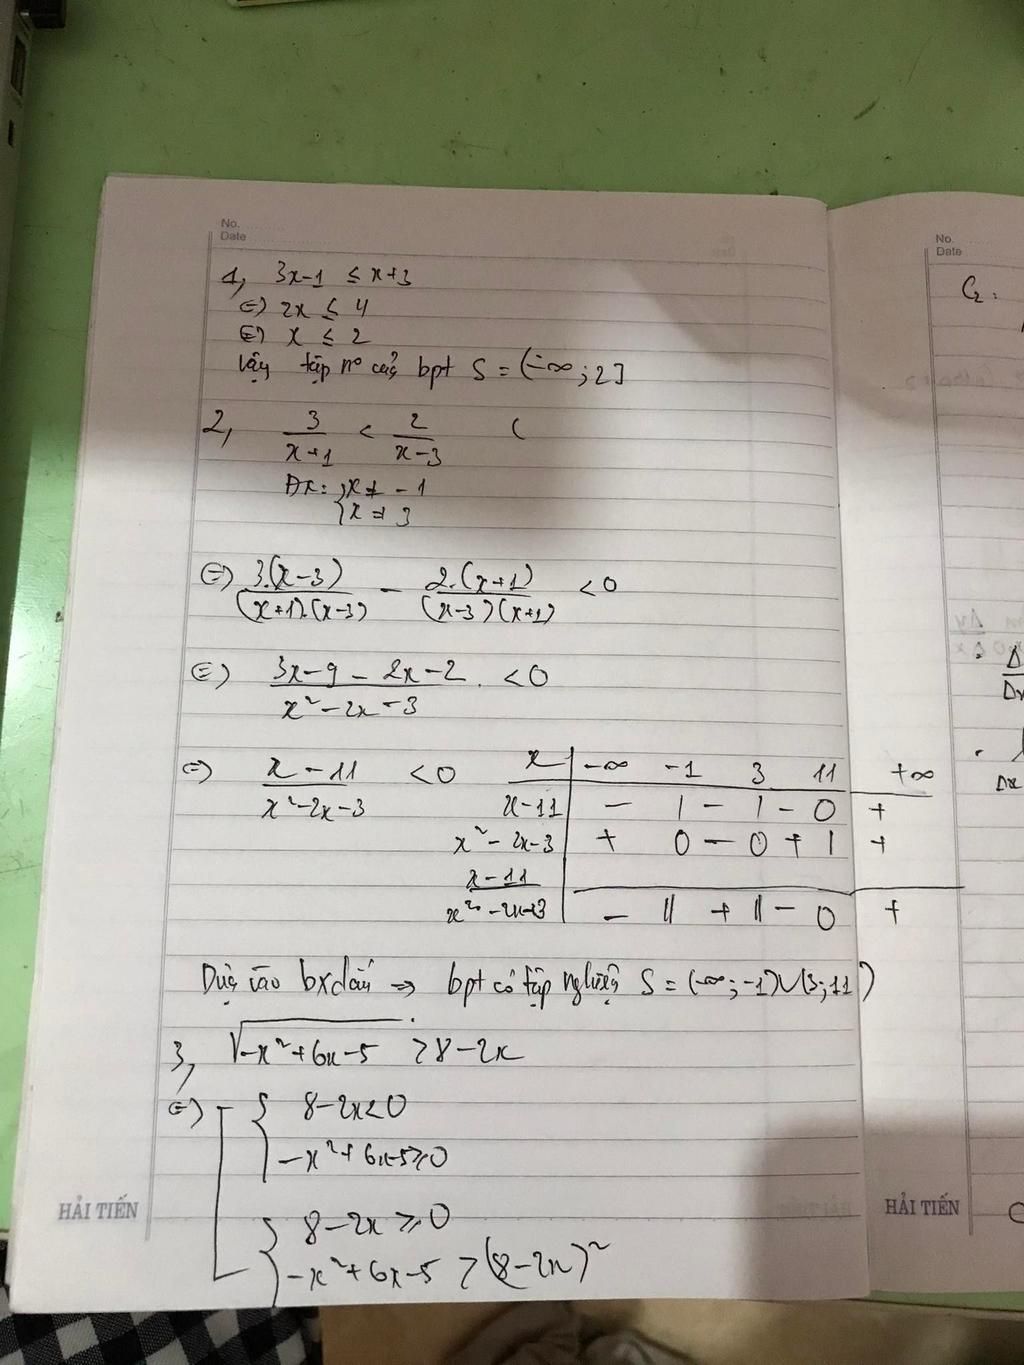 No.
Date
1, 3x-1 ≤ x+3
⇔) 2x ≤ 4
⇔) x ≤ 2
Vậy tập n° của bpt S = (-∞ ; 2]
2, 3/(x+1) < 2/(x-3) (
Đk: { x ≠ -1
{ x ≠ 3
⇔) 3.(x-3)/((x+1).(x-3)) - 2.(x+1)/((x-3)(x+1)) < 0
⇔) (3x-9-2x-2)/(x²-2x-3) < 0
⇔) (x-11)/(x²-2x-3) < 0
x | -∞ -1 3 11 +∞
x-11 | - | - | - 0 +
x²-2x-3 | + 0 - 0 + | +
(x-11)/(x²-2x-3) | - || + || - 0 +
Dựa vào bxdấu ⇒ bpt có tập nghiệm S = (-∞; -1)∪(3; 11)
3, √(-x²+6x-5) > 8-2x
⇔) [ { 8-2x<0
{ -x²+6x-5≥0
{ 8-2x ≥ 0
{ -x²+6x-5 > (8-2x)²
HẢI TIẾN
No.
Date
C₂:
Δ
Δx
Δx
HẢI TIẾN